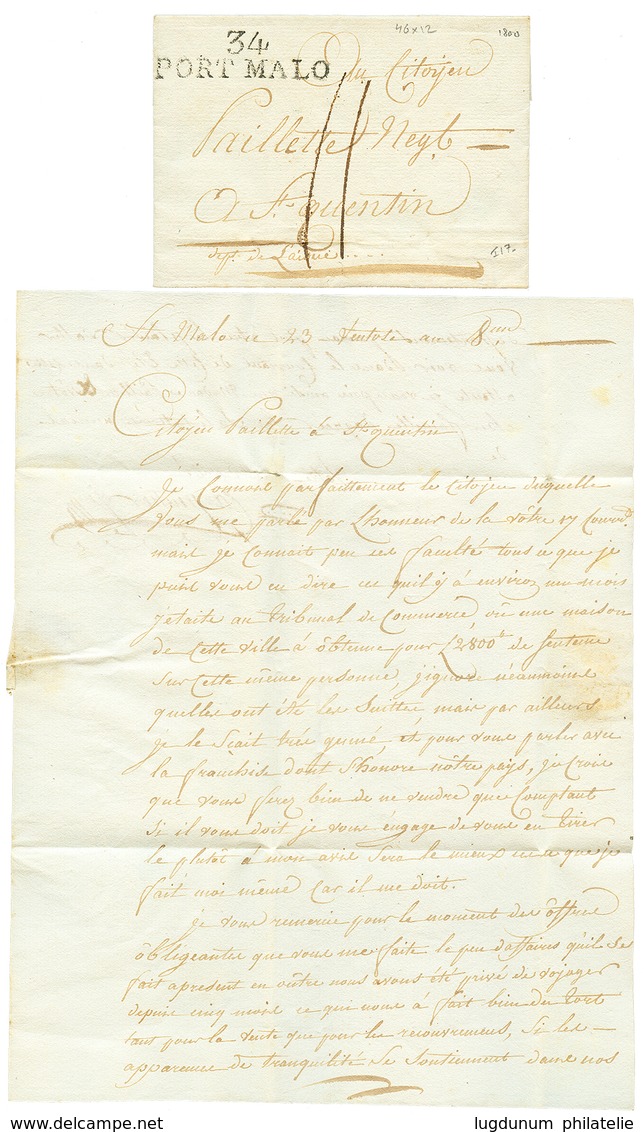 46x12
1800
34
PORT MALO
Du Citoyen
Paillette Negt
A St Quentin
dept. de L'aisne
11
St Malo le 23 Ventose an 8me
Citoyen Paillette à St quentin
Je Connoit parfaittement le Citoyen
vous me parlé par L'honneur de la vôtre 17 Courrt
mais je Connait peu ses faculté tous ce que je
puis vous en dire ce qu'il y à environ un mois
j'etaite au tribunal de Commerce où une maison
de Cette ville à ôbtenue pour L2800tt de Sentence
sur Cette même personne, j'ignore néamoins
quelles ont été les Suittes, mais par ailleurs
je le Scait très gesné, et pour vous parler avec
la franchise dont S'honore nôtre pays, je Crois
que vous ferez bien de ne vendre que Comptant
Si il vous doit je vous éngage de vous en tirer
le plutôt à mon avis Sera le mieux ce que je
fait moi même Car il me doit.
je vous remercie pour le moment des ôffres
ôbligeantes que vous me faite le peu d'affaires qu'il Se
fait apresent en oûtre nous avons été privé de voyager
depuis cinq mois ce qui nous à fait bien du tort
tant pour la vente que pour les recouvremens, Si les
apparence de tranquilité Se Soutiennent dans nos
delcampe.net
lugdunum philatelie